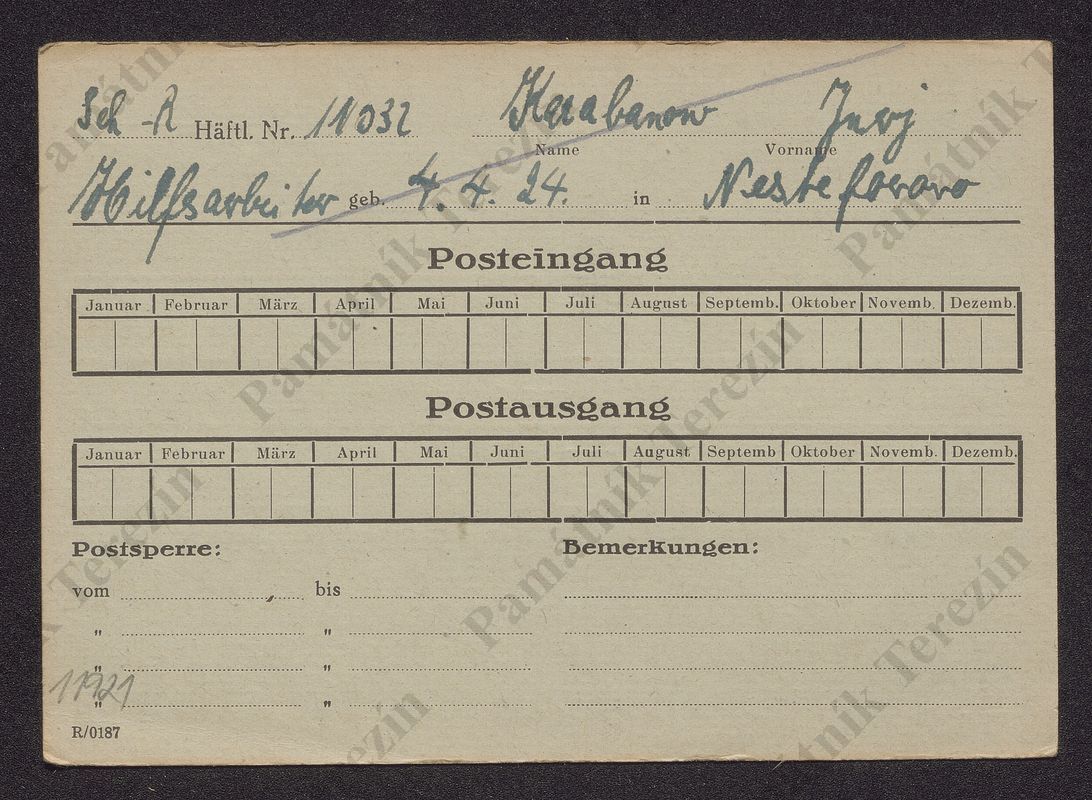 Sch-R Häftl. Nr. 11032 Karabanow Jurj
Name Vorname
Hilfsarbeiter geb. 4.4.24. in Nesteforovo
Posteingang
Januar Februar März April Mai Juni Juli August Septemb. Oktober Novemb. Dezemb.
Postausgang
Januar Februar März April Mai Juni Juli August Septemb Oktober Novemb. Dezemb.
Postsperre: Bemerkungen:
vom bis
" "
" "
" "
11921
R/0187
Památník Terezín